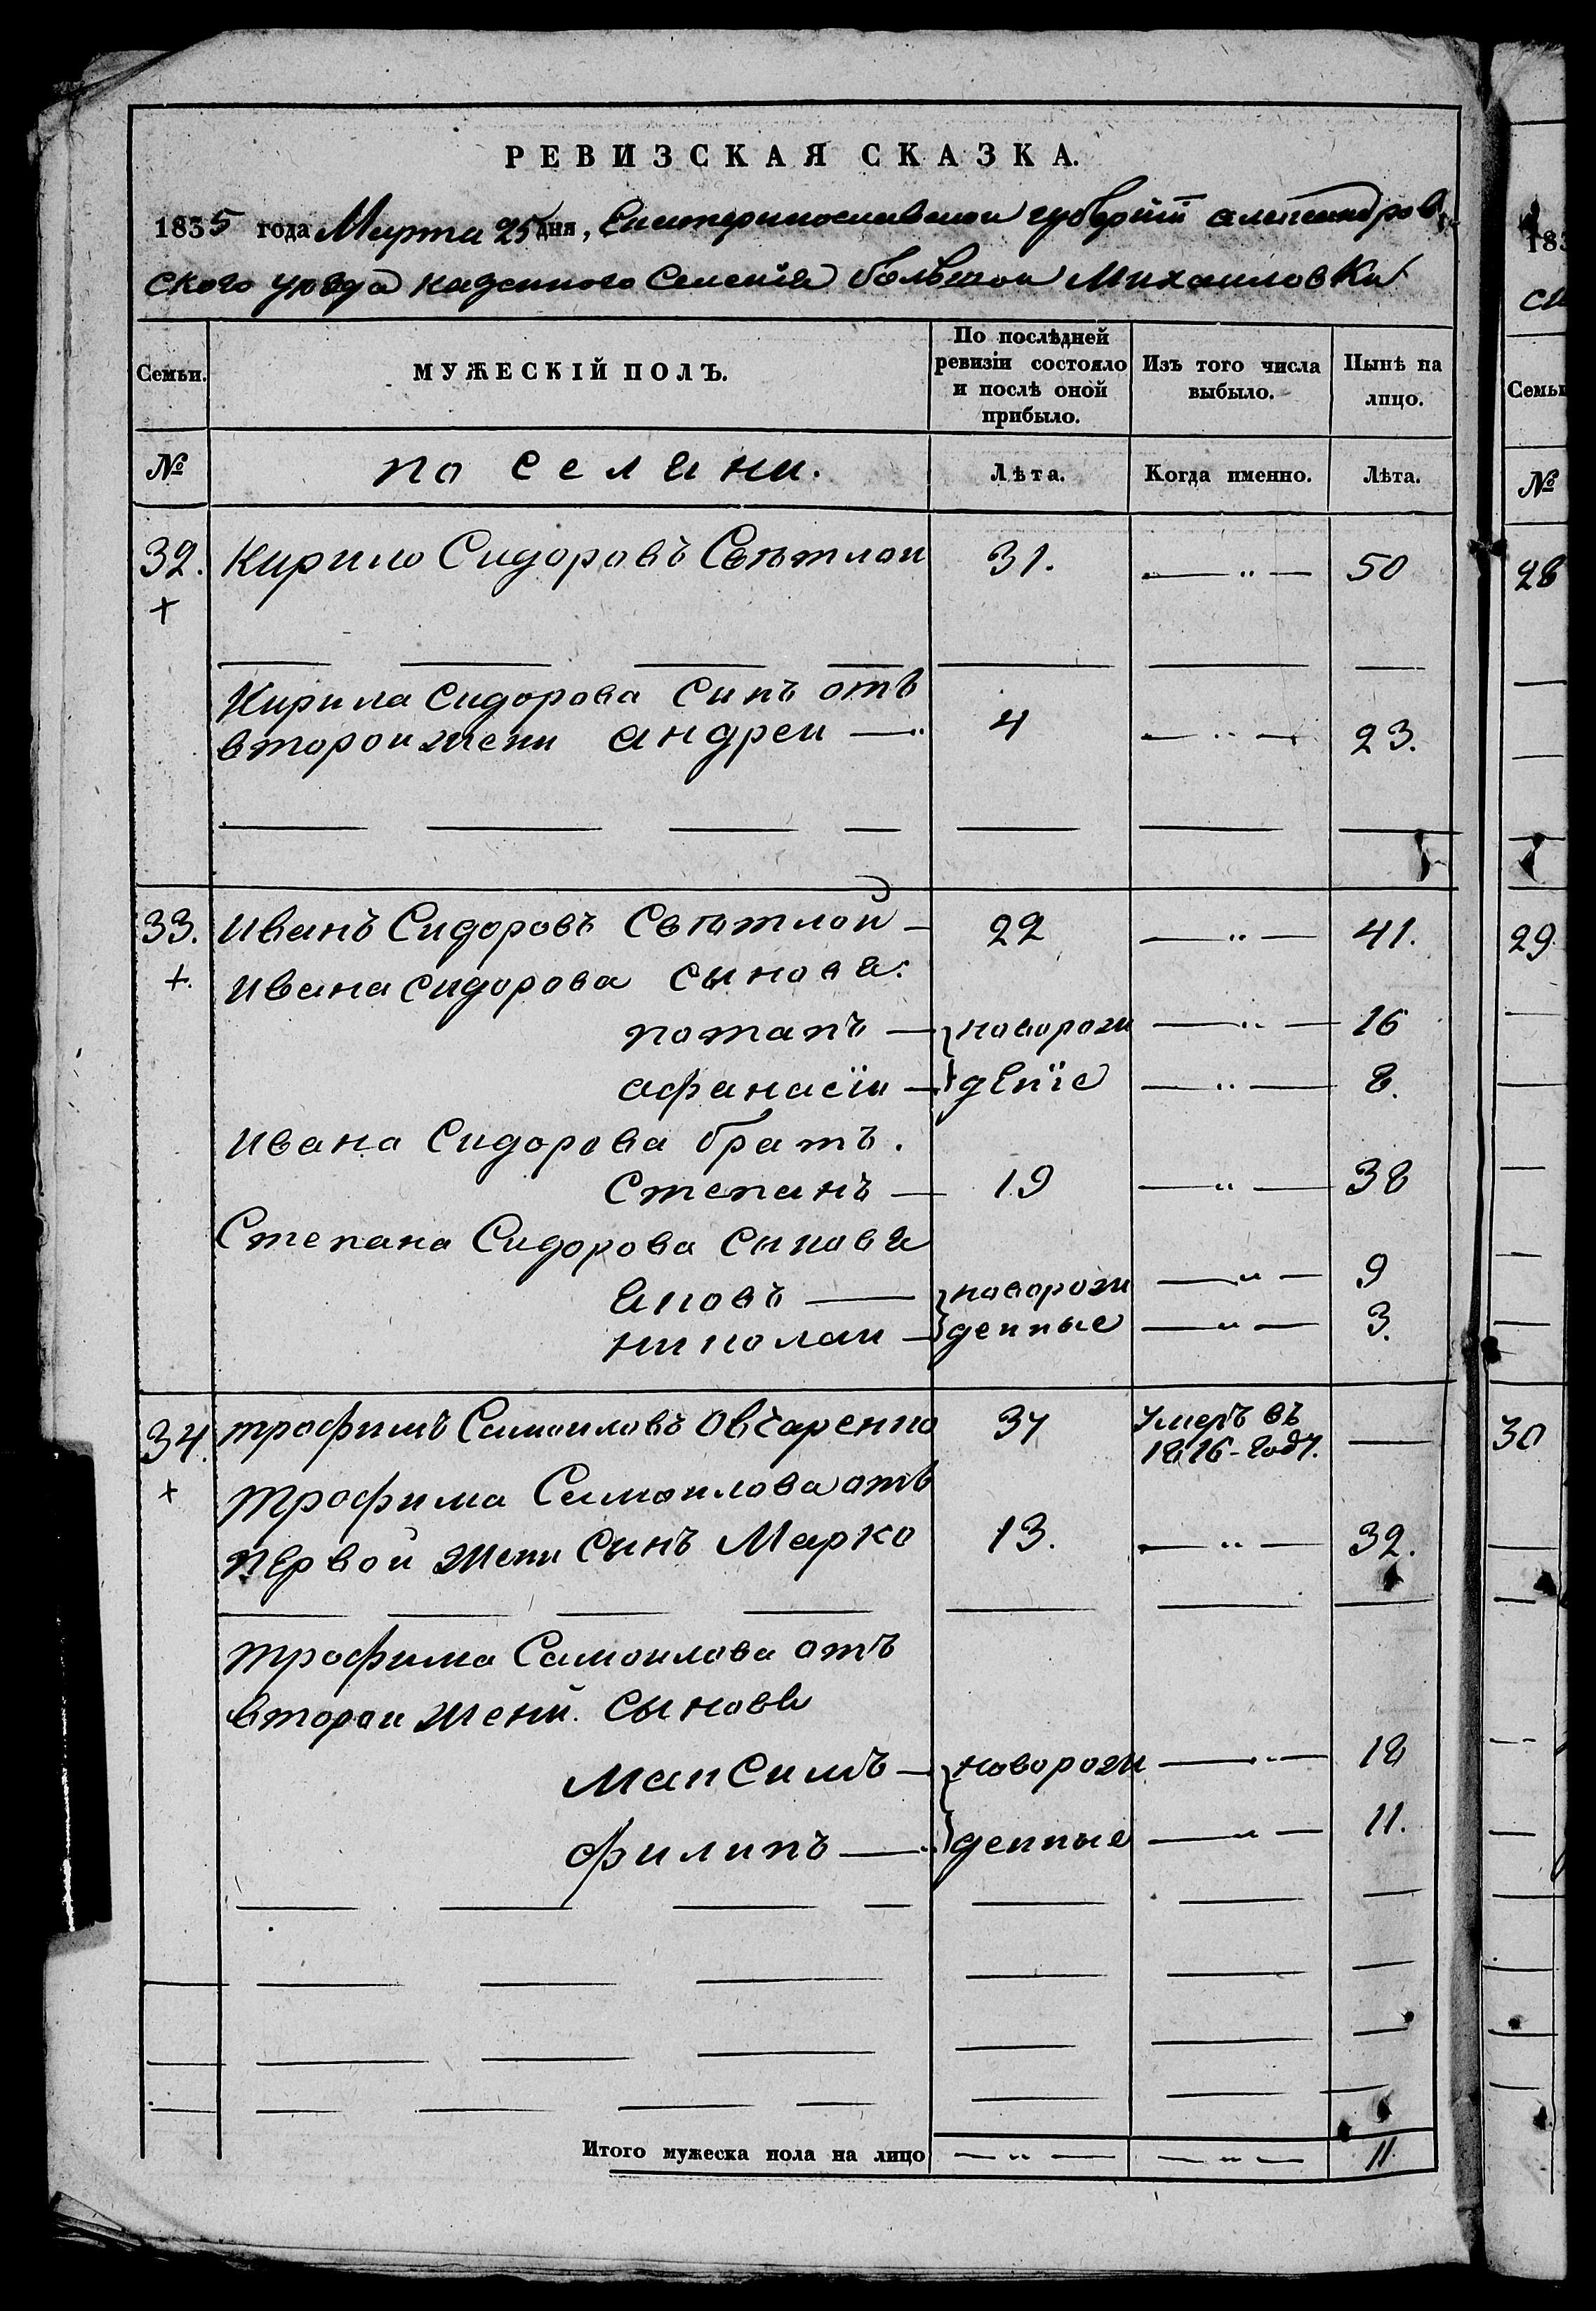 РЕВИЗСКАЯ СКАЗКА.
1835 года Марта 25 дня, Екатеринославской губерній александров
ского уезда казенного Селенія большой Михаиловки
Семьи.
МУЖЕСКІЙ ПОЛЪ.
По послѣдней ревизіи состояло и послѣ оной прибыло.
Изъ того числа выбыло.
Нынѣ на лицо.
№
поселяни.
Лѣта.
Когда именно.
Лѣта.
32. Кирило Сидоровъ Свѣтлои 31. —„— 50
+
Кирила Сидорова Синъ отъ
второи жени андреи —„ 4 —„— 23.
33. Иванъ Сидоровъ Свѣтлой — 22 —„— 41.
+. Ивана Сидорова сынове:
потапъ — новорож —„— 16
афанасіи — деніе —„— 8.
Ивана Сидорова братъ.
Степанъ — 19 —„— 38
Степана Сидорова сынове
Яковъ — новорож —„— 9
николаи — денные —„— 3.
34. трофимъ Самоиловъ Овчаренко 34 Умеръ въ
1816-году. —
+ трофима Самоилова отъ
первой жени сынъ Марко 13. —„— 32.
трофима Самоилова отъ
второи жени. сынове
Максимъ — новорож —„— 18
филипъ —„ денные —„— 11.
Итого мужеска пола на лицо —„— —„— 11.
183
Семьи
№
28
29.
30